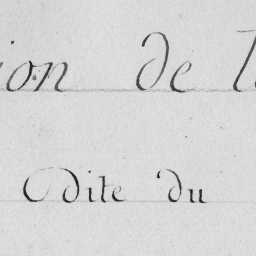 ion de l
Odite du